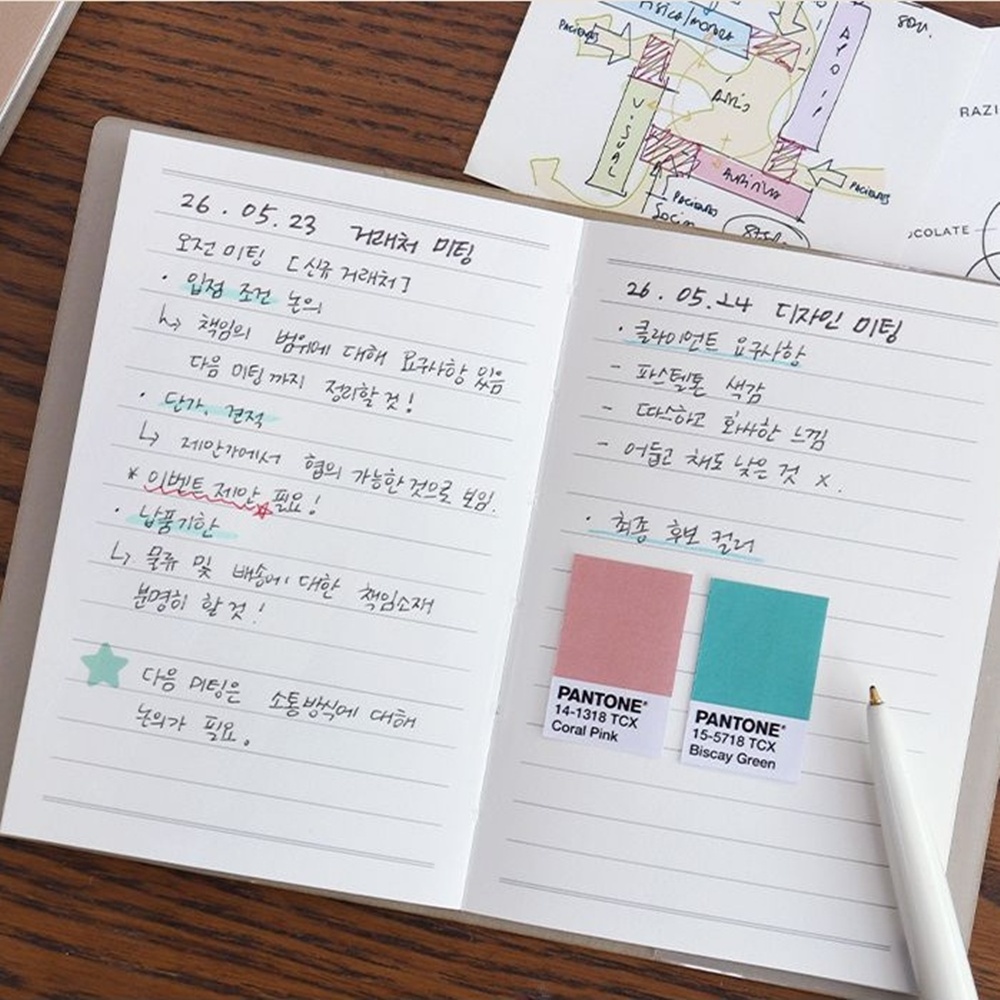 26.05.23 거래처 미팅
오전 미팅 [신규 거래처]
· 입점 조건 논의
↳ 책임의 범위에 대해 요구사항 있음
다음 미팅까지 정리할 것!
· 단가, 견적
↳ 제안가에서 협의 가능한 것으로 보임.
* 이벤트 제안 필요!
· 납품기한
↳ 물류 및 배송에 대한 책임소재
분명히 할 것!
다음 미팅은 소통방식에 대해
논의가 필요.
26.05.24 디자인 미팅
· 클라이언트 요구사항
- 파스텔톤 색감
- 따스하고 화사한 느낌
- 어둡고 채도 낮은 것 x.
· 최종 후보 컬러
PANTONE®
14-1318 TCX
Coral Pink
PANTONE®
15-5718 TCX
Biscay Green
VISUAL
PACIENTES
RAZI
COLATE